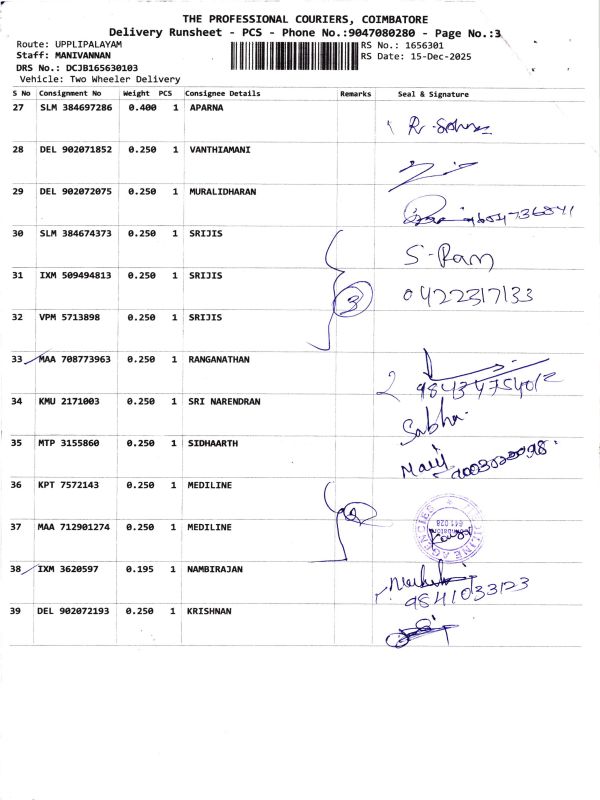 THE PROFESSIONAL COURIERS, COIMBATORE
Delivery Runsheet - PCS - Phone No.:9047080280 - Page No.:3
Route: UPPLIPALAYAM
RS No.: 1656301
Staff: MANIVANNAN
RS Date: 15-Dec-2025
DRS No.: DCJB165630103
Vehicle: Two Wheeler Delivery
S No Consignment No Weight PCS Consignee Details Remarks Seal & Signature
27 SLM 384697286 0.400 1 APARNA
28 DEL 902071852 0.250 1 VANTHIAMANI
29 DEL 902072075 0.250 1 MURALIDHARAN
30 SLM 384674373 0.250 1 SRIJIS S-Ram
31 IXM 509494813 0.250 1 SRIJIS 3 04222317133
32 VPM 5713898 0.250 1 SRIJIS
33 MAA 708773963 0.250 1 RANGANATHAN
34 KMU 2171003 0.250 1 SRI NARENDRAN Sabha.
35 MTP 3155860 0.250 1 SIDHAARTH
36 KPT 7572143 0.250 1 MEDILINE
37 MAA 712901274 0.250 1 MEDILINE 2 MEDILINE AGENCIES 641 028
38 IXM 3620597 0.195 1 NAMBIRAJAN
9841033123
39 DEL 902072193 0.250 1 KRISHNAN